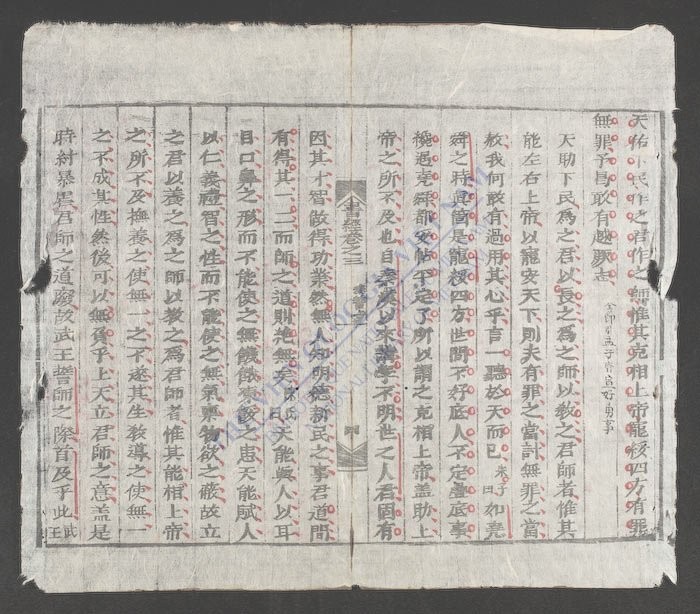 天佑下民作之君作之師惟其克相上帝寵綏四方有罪
無罪予曷敢有越厥志
此節引孟子言宣好勇事
天助下民為之君以長之為之師以教之君師者惟其
能左右上帝以寵安天下則夫有罪之當討無罪之當
赦我何敢有過用其心乎言一聽於天而已 朱子曰 如堯
舜之時真箇是寵綏四方世間不好底人不定疊底事
纔遇堯舜都安帖平定了所以謂之克相上帝蓋助上
帝之所不及也自秦漢以來講學不明世之人君固有
書經卷之三
泰誓上
因其才智做得功業然無人知明德新民之事君道間
有得其一二而師之道則絶無矣 陳氏曰 天能與人以耳
目口鼻之形而不能使之無饑餓凍餒之患天能賦人
以仁義禮智之性而不能使之無氣稟物欲之蔽故立
之君以養之為之師以教之為君師者惟其能相上帝
之所不及撫養之使無一之不遂其生教導之使無一
之不成其性然後可以無負乎上天立君師之意蓋是
時紂暴虐君師之道廢故武王誓師之際首及乎此 武王